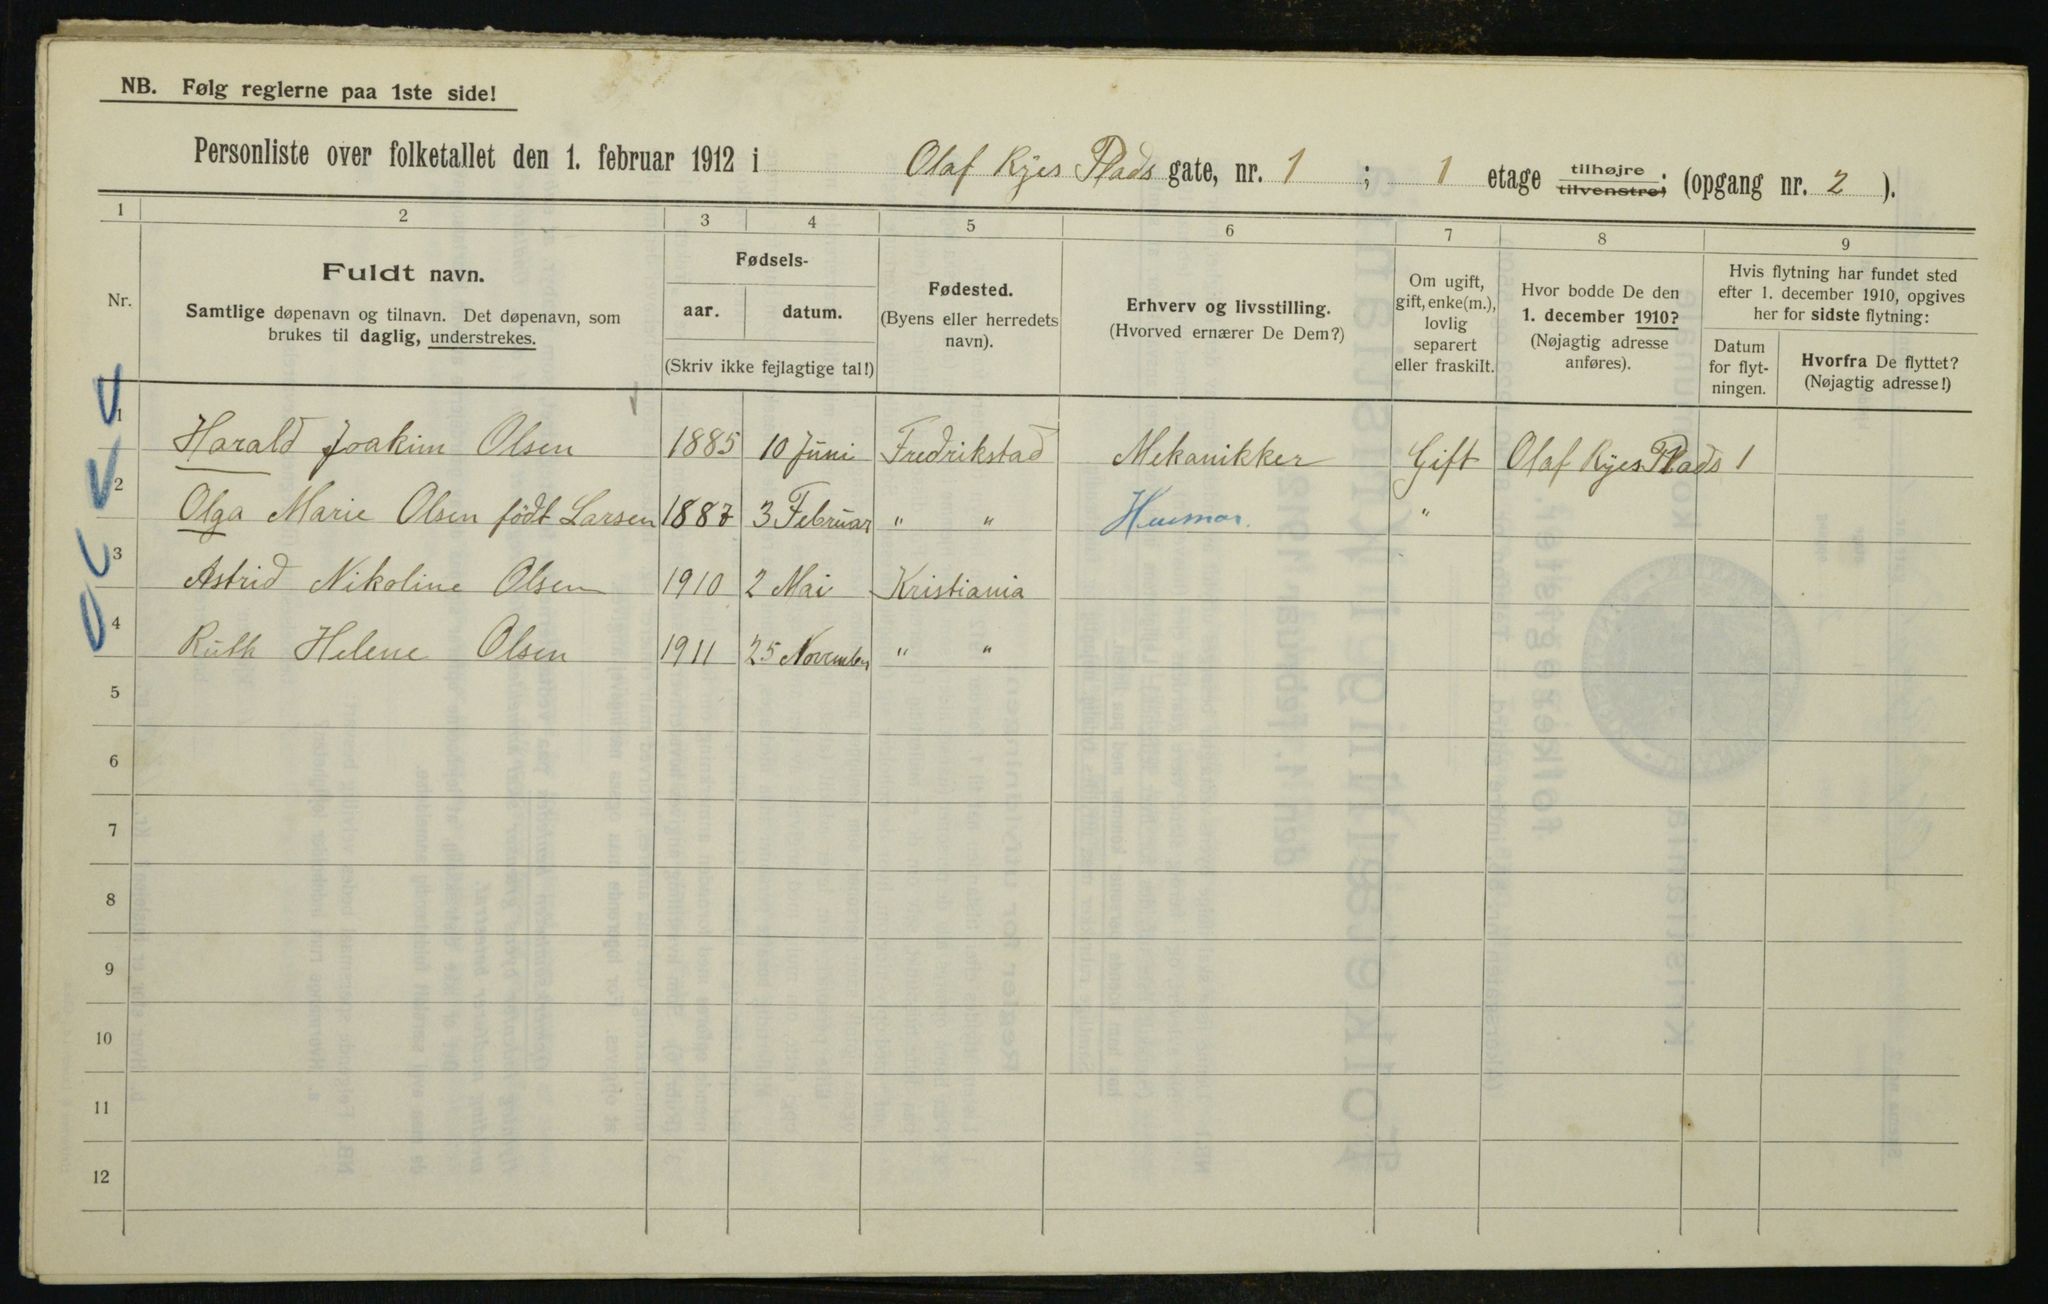 NB. Følg reglerne paa 1ste side!
Personliste over folketallet den 1. februar 1912 i Olaf Ryes Plads gate, nr. 1 ; 1 etage tilhøjre tilvenstre; (opgang nr. 2 ).
1 2 3 4 5 6 7 8 9
Nr.
Fuldt navn.
Samtlige døpenavn og tilnavn. Det døpenavn, som
brukes til daglig, understrekes.
Fødsels-
aar. datum.
(Skriv ikke fejlagtige tal!)
Fødested.
(Byens eller herredets
navn).
Erhverv og livsstilling.
(Hvorved ernærer De Dem?)
Om ugift,
gift, enke(m.),
lovlig
separert
eller fraskilt.
Hvor bodde De den
1. december 1910?
(Nøjagtig adresse
anføres).
Hvis flytning har fundet sted
efter 1. december 1910, opgives
her for sidste flytning:
Datum
for flyt-
ningen.
Hvorfra De flyttet?
(Nøjagtig adresse!)
1 Harald Joakim Olsen 1885 10 Juni Fredrikstad Mekanikker Gift Olaf Ryes Plads 1
2 Olga Marie Olsen født Larsen 1887 3 Februar " " Husmor. "
3 Astrid Nikoline Olsen 1910 2 Mai Kristiania
4 Ruth Helene Olsen 1911 25 November " "
5
6
7
8
9
10
11
12